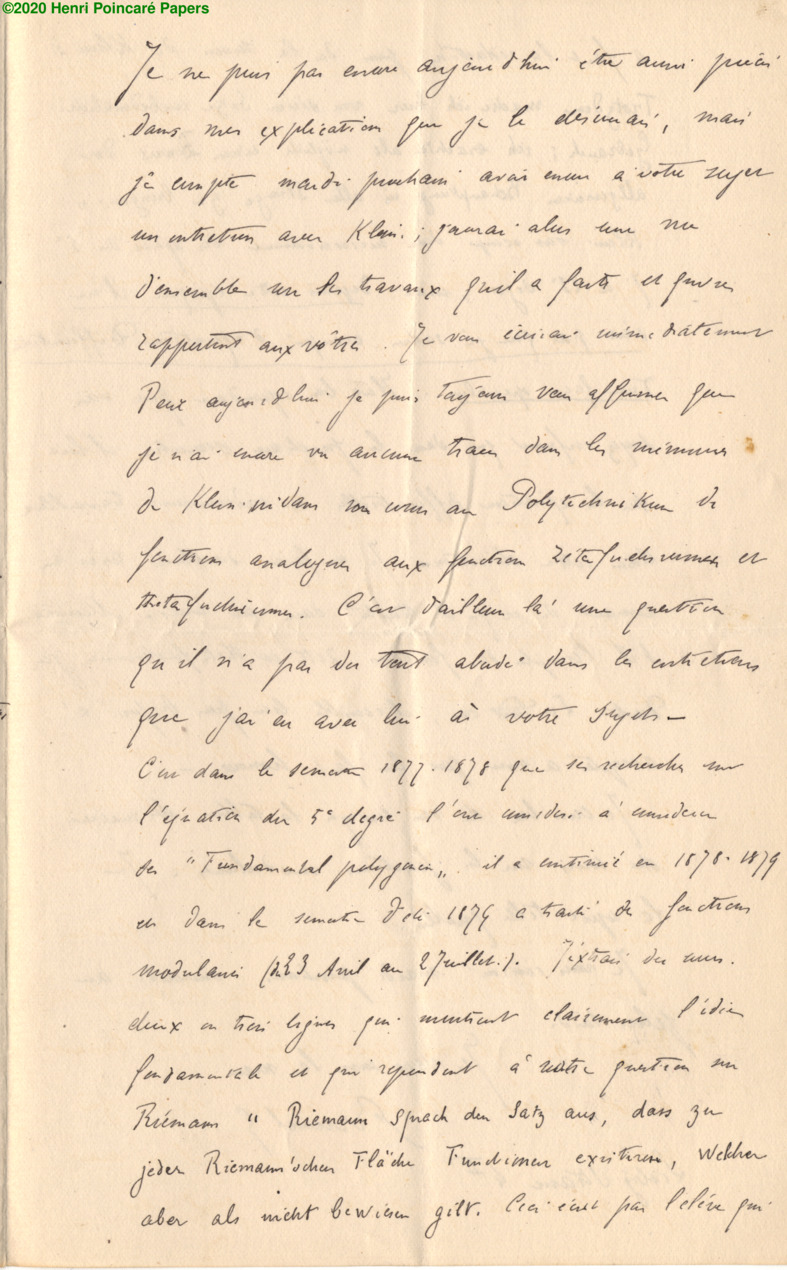 ©2020 Henri Poincaré Papers
Je ne puis pas encore aujourd'hui être aussi précis
dans mes explications que je le désirerais, mais
je compte mardi prochain avoir encore à votre sujet
un entretien avec Klein ; j'aurai alors une vue
d'ensemble sur les travaux qu'il a faits et qui se
rapportent aux vôtres. Je vous écrirai immédiatement
Pour aujourd'hui je puis toujours vous affirmer que
je n'ai encore vu aucune trace dans les mémoires
de Klein ni dans son cours au Polytechnikum de
fonctions analogues aux fonctions zétafuchsiennes et
thétafuchsiennes. C'est d'ailleurs là une question
qu'il n'a pas du tout abordé dans les entretiens
que j'ai eu avec lui à votre sujet —
C'est dans le semestre 1877-1878 que ses recherches sur
l'équation du 5e degré l'ont à considérer
ses "Fundamental polygonen„ il a continué en 1878-1879
et dans le semestre d'été 1879 a traité des fonctions
modulaires (du 23 Avril au 2 Juillet.). J'extrais du cours.
deux ou trois lignes qui montrent clairement l'idée
fondamentale et qui répondent à votre question sur
Riemann " Riemann sprach den Satz aus, dass zu
jeder Riemann'schen Fläche Functionen existiren, welcher
aber als nicht bewiesen gilt. Ceci écrit par l'élève qui